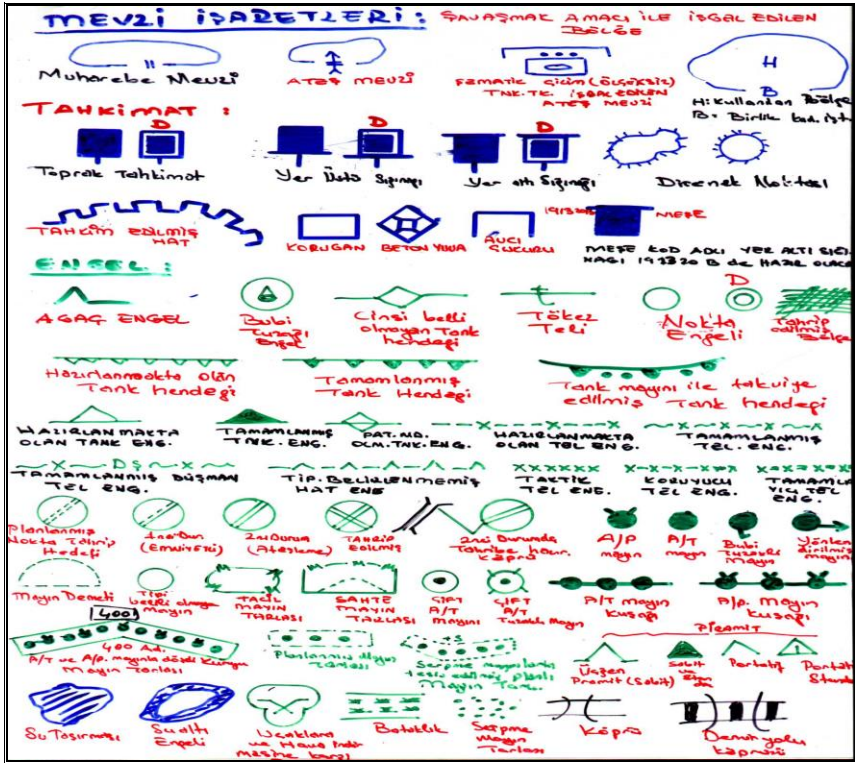 MEVZİ İŞARETLERİ: SAVAŞMAK AMACI İLE İŞGAL EDİLEN
BÖLGE
Muharebe Mevzi
ATEŞ MEVZİ
ŞEMATİK ÇİZİM (ÖLÇEKSİZ)
TNK.TK. İŞGAL EDİLEN
ATEŞ MEVZİ
H
B
H: Kullanılan Bölge
B: Birlik
TAHKİMAT :
D
D
D
Toprak Tahkimat
Yer Üstü Sığınağı
Yer altı Sığınağı
Direnek Noktası
TAHKİM EDİLMİŞ
HAT
KORUGAN
BETON YUVA
AVCI
ÇUKURU
MEŞE
MEŞE KOD ADLI YER ALTI SIĞI-
NAĞI 191320 B de HAZIR OLACAK
ENGEL :
D
AĞAÇ ENGEL
Bubi
Tuzağı
Engel
Cinsi belli
olmayan Tank
hendeği
Tökez
Teli
Nokta
Engeli
Tahrip
edilmiş
Bölge
Hazırlanmakta olan
Tank hendeği
Tamamlanmış
Tank Hendeği
Tank mayını ile takviye
edilmiş Tank hendeği
HAZIRLANMAKTA
OLAN TANK ENG.
TAMAMLANMIŞ
TNK. ENG.
PAT. MD.
OLM. TNK. ENG.
HAZIRLANMAKTA
OLAN TEL ENG.
TAMAMLANMIŞ
TEL. ENG.
DŞ
TAMAMLANMIŞ DÜŞMAN
TEL ENG.
TİP. BELİRLENMEMİŞ
HAT ENG
TAKTİK
TEL ENG.
KORUYUCU
TEL ENG.
TAMAMLA
YICI TEL
ENG.
Planlanmış
Nokta Tahrip
Hedefi
1nci Durum
(EMNİYETİ)
2nci Durum
(Ateşleme)
TAHRİP
EDİLMİŞ
2nci Durumda
Tahribe hazır
köprü
A/P
mayın
A/T
mayın
Bubi
Tuzaklı
Mayın
Yönlen
dirilmiş
mayın
Mayın Demeti
Tipi
belli olmayan
Mayın
TACİL
MAYIN
TARLASI
SAHTE
MAYIN
TARLASI
ÇİFT
A/T
Mayını
ÇİFT
A/T
Tuzaklı Mayın
A/T mayın
kuşağı
A/p. Mayın
kuşağı
400
400 Ad.
A/T ve A/p. mayınla döşeli Koruyu
Mayın Tarlası
Planlanmış Mayın
Tarlası
+S
Serpme mayınlarla
tesis edilmiş planlı
Mayın Tarl.
PİRAMİT
Üçgen
Pramit (Sabit)
Sabit
Portatif
Portatif
Standa
Su Taşırması
Su altı
Engeli
Uçaklara
ve Hava İndir
mesine karşı
Bataklık
Serpme
Mayın
Tarlası
Köprü
Demir yolu
köprüsü